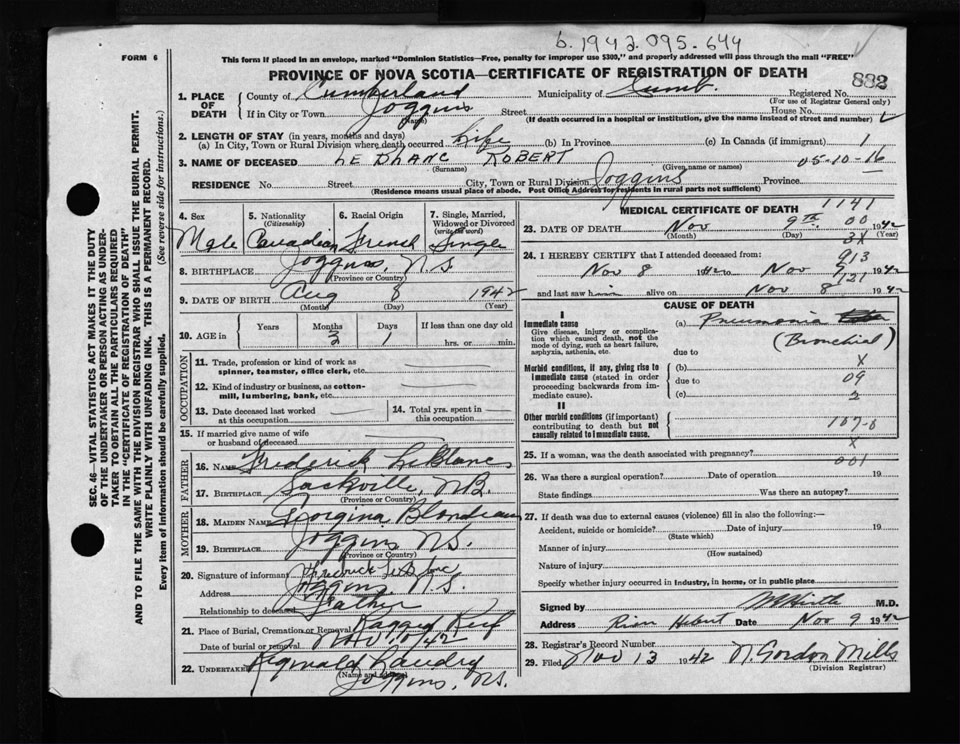 6.1942.095.644
FORM 6
This form if placed in an envelope, marked "Dominion Statistics—Free, penalty for improper use $300," and properly addressed will pass through the mail "FREE"
PROVINCE OF NOVA SCOTIA—CERTIFICATE OF REGISTRATION OF DEATH
882
1. PLACE OF DEATH County of Cumberland Municipality of Cumb. Registered No.
(For use of Registrar General only)
If in City or Town Joggins Street House No.
(Name) (If death occurred in a hospital or institution, give the name instead of street and number)
2. LENGTH OF STAY (in years, months and days)
(a) In City, Town or Rural Division where death occurred Life (b) In Province (c) In Canada (if immigrant) 1
3. NAME OF DECEASED LE BLANC ROBERT 05-10-16
(Surname) (Given name or names)
RESIDENCE No. Street City, Town or Rural Division Joggins Province
(Residence means usual place of abode. Post Office Address for residents in rural parts not sufficient)
SEC. 46—VITAL STATISTICS ACT MAKES IT THE DUTY
OF THE UNDERTAKER OR PERSON ACTING AS UNDER-
TAKER TO OBTAIN ALL THE PARTICULARS REQUIRED
IN THE "CERTIFICATE OF REGISTRATION OF DEATH"
AND TO FILE THE SAME WITH THE DIVISION REGISTRAR WHO SHALL ISSUE THE BURIAL PERMIT.
WRITE PLAINLY WITH UNFADING INK. THIS IS A PERMANENT RECORD.
Every item of information should be carefully supplied. (See reverse side for instructions.)
4. Sex 5. Nationality (Citizenship) 6. Racial Origin 7. Single, Married, Widowed or Divorced (write the word)
Male Canadian French Single
8. BIRTHPLACE Joggins, N.S.
(Province or Country)
9. DATE OF BIRTH Aug 8 1942
(Month) (Day) (Year)
10. AGE in Years Months Days If less than one day old
3 1 hrs. or min.
OCCUPATION
11. Trade, profession or kind of work as spinner, teamster, office clerk, etc.
12. Kind of industry or business, as cotton-mill, lumbering, bank, etc.
13. Date deceased last worked at this occupation
14. Total yrs. spent in this occupation
15. If married give name of wife or husband of deceased
FATHER
16. NAME Frederick LeBlanc
17. BIRTHPLACE Sackville, N.B.
(Province or Country)
MOTHER
18. MAIDEN NAME Georgina Blondeau
19. BIRTHPLACE Joggins N.S.
(Province or Country)
20. Signature of informant Fredrick LeBlanc
Address Joggins N.S.
Relationship to deceased Father
21. Place of Burial, Cremation or Removal Ragged Reef
Date of burial or removal Nov. 1942
22. UNDERTAKER Reginald Landry
(Name and address)
Joggins, N.S.
MEDICAL CERTIFICATE OF DEATH 1141
23. DATE OF DEATH Nov 9th 00 1942
(Month) (Day) (Year)
3X
24. I HEREBY CERTIFY that I attended deceased from: 913
Nov 8 1942 to Nov 9 1942
121
and last saw him alive on Nov 8 1942
CAUSE OF DEATH
I
Immediate cause (a) Pneumonia
Give disease, injury or complication which caused death, not the mode of dying, such as heart failure, asphyxia, asthenia, etc.
(Bronchial)
due to
X
Morbid conditions, if any, giving rise to immediate cause (stated in order proceeding backwards from immediate cause).
(b)
due to 09
(c) 2
II
Other morbid conditions (if important) contributing to death but not causally related to immediate cause.
107-0
X
25. If a woman, was the death associated with pregnancy?
001
26. Was there a surgical operation? Date of operation 19
State findings Was there an autopsy?
27. If death was due to external causes (violence) fill in also the following:—
Accident, suicide or homicide? Date of injury 19
(State which)
Manner of injury
(How sustained)
Nature of injury
Specify whether injury occurred in industry, in home, or in public place
Signed by M.D.
Address River Hebert Date Nov 9 1942
28. Registrar's Record Number
29. Filed Nov 13 1942 N. Gordon Mills
(Division Registrar)